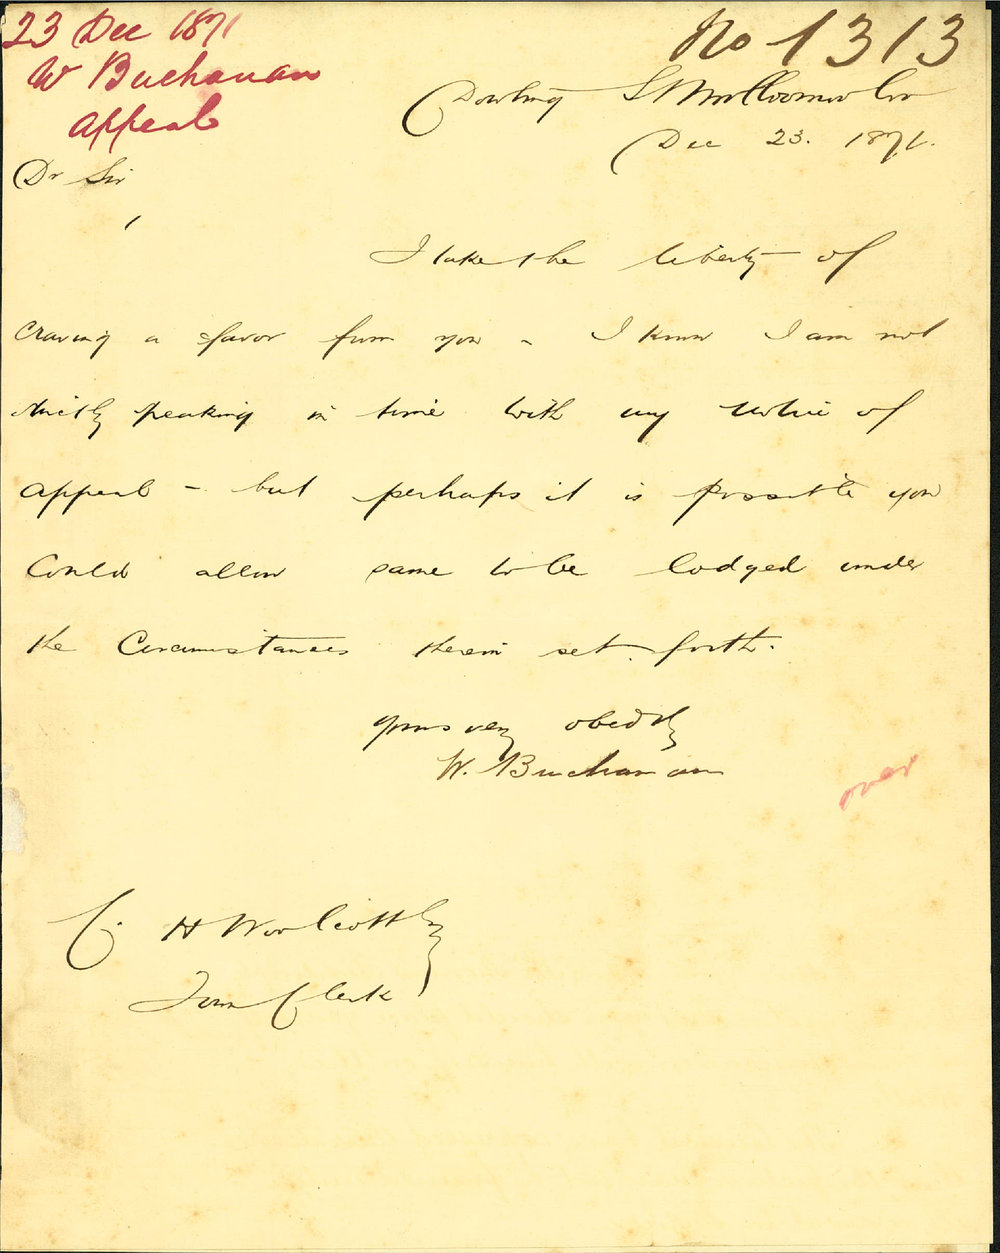 23 Dec 1871
W Buchanan
appeal
No 1313
Dowling St Woolloomooloo
Dec 23. 1871.
Dr Sir,
I take the liberty of
craving a favor from you - I know I am not
strictly speaking in time with my notice of
appeal - but perhaps it is possible you
could allow same to be lodged under
the Circumstances therein set forth.
Yours very obedtly
W. Buchanan
over
C. H Woolcott Esq
Town Clerk